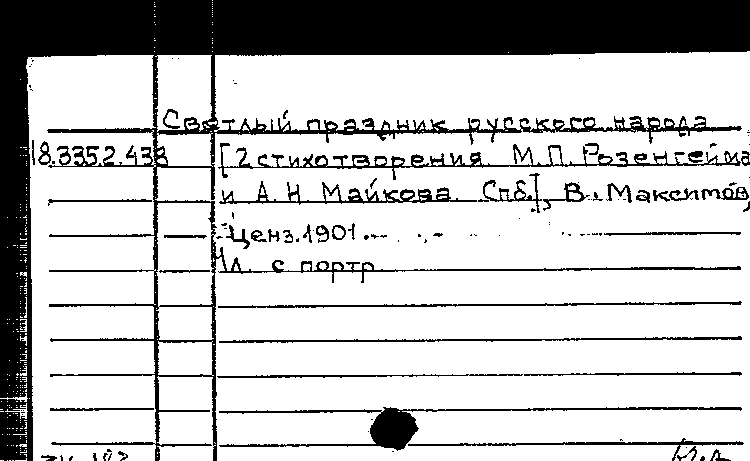 Светлый праздник русского народа
18.335.2.438 [2 стихотворения М.П. Розенгейма
и А.Н Майкова. Спб.], В. Максимов,
Ценз.1901.
1л. с портр.